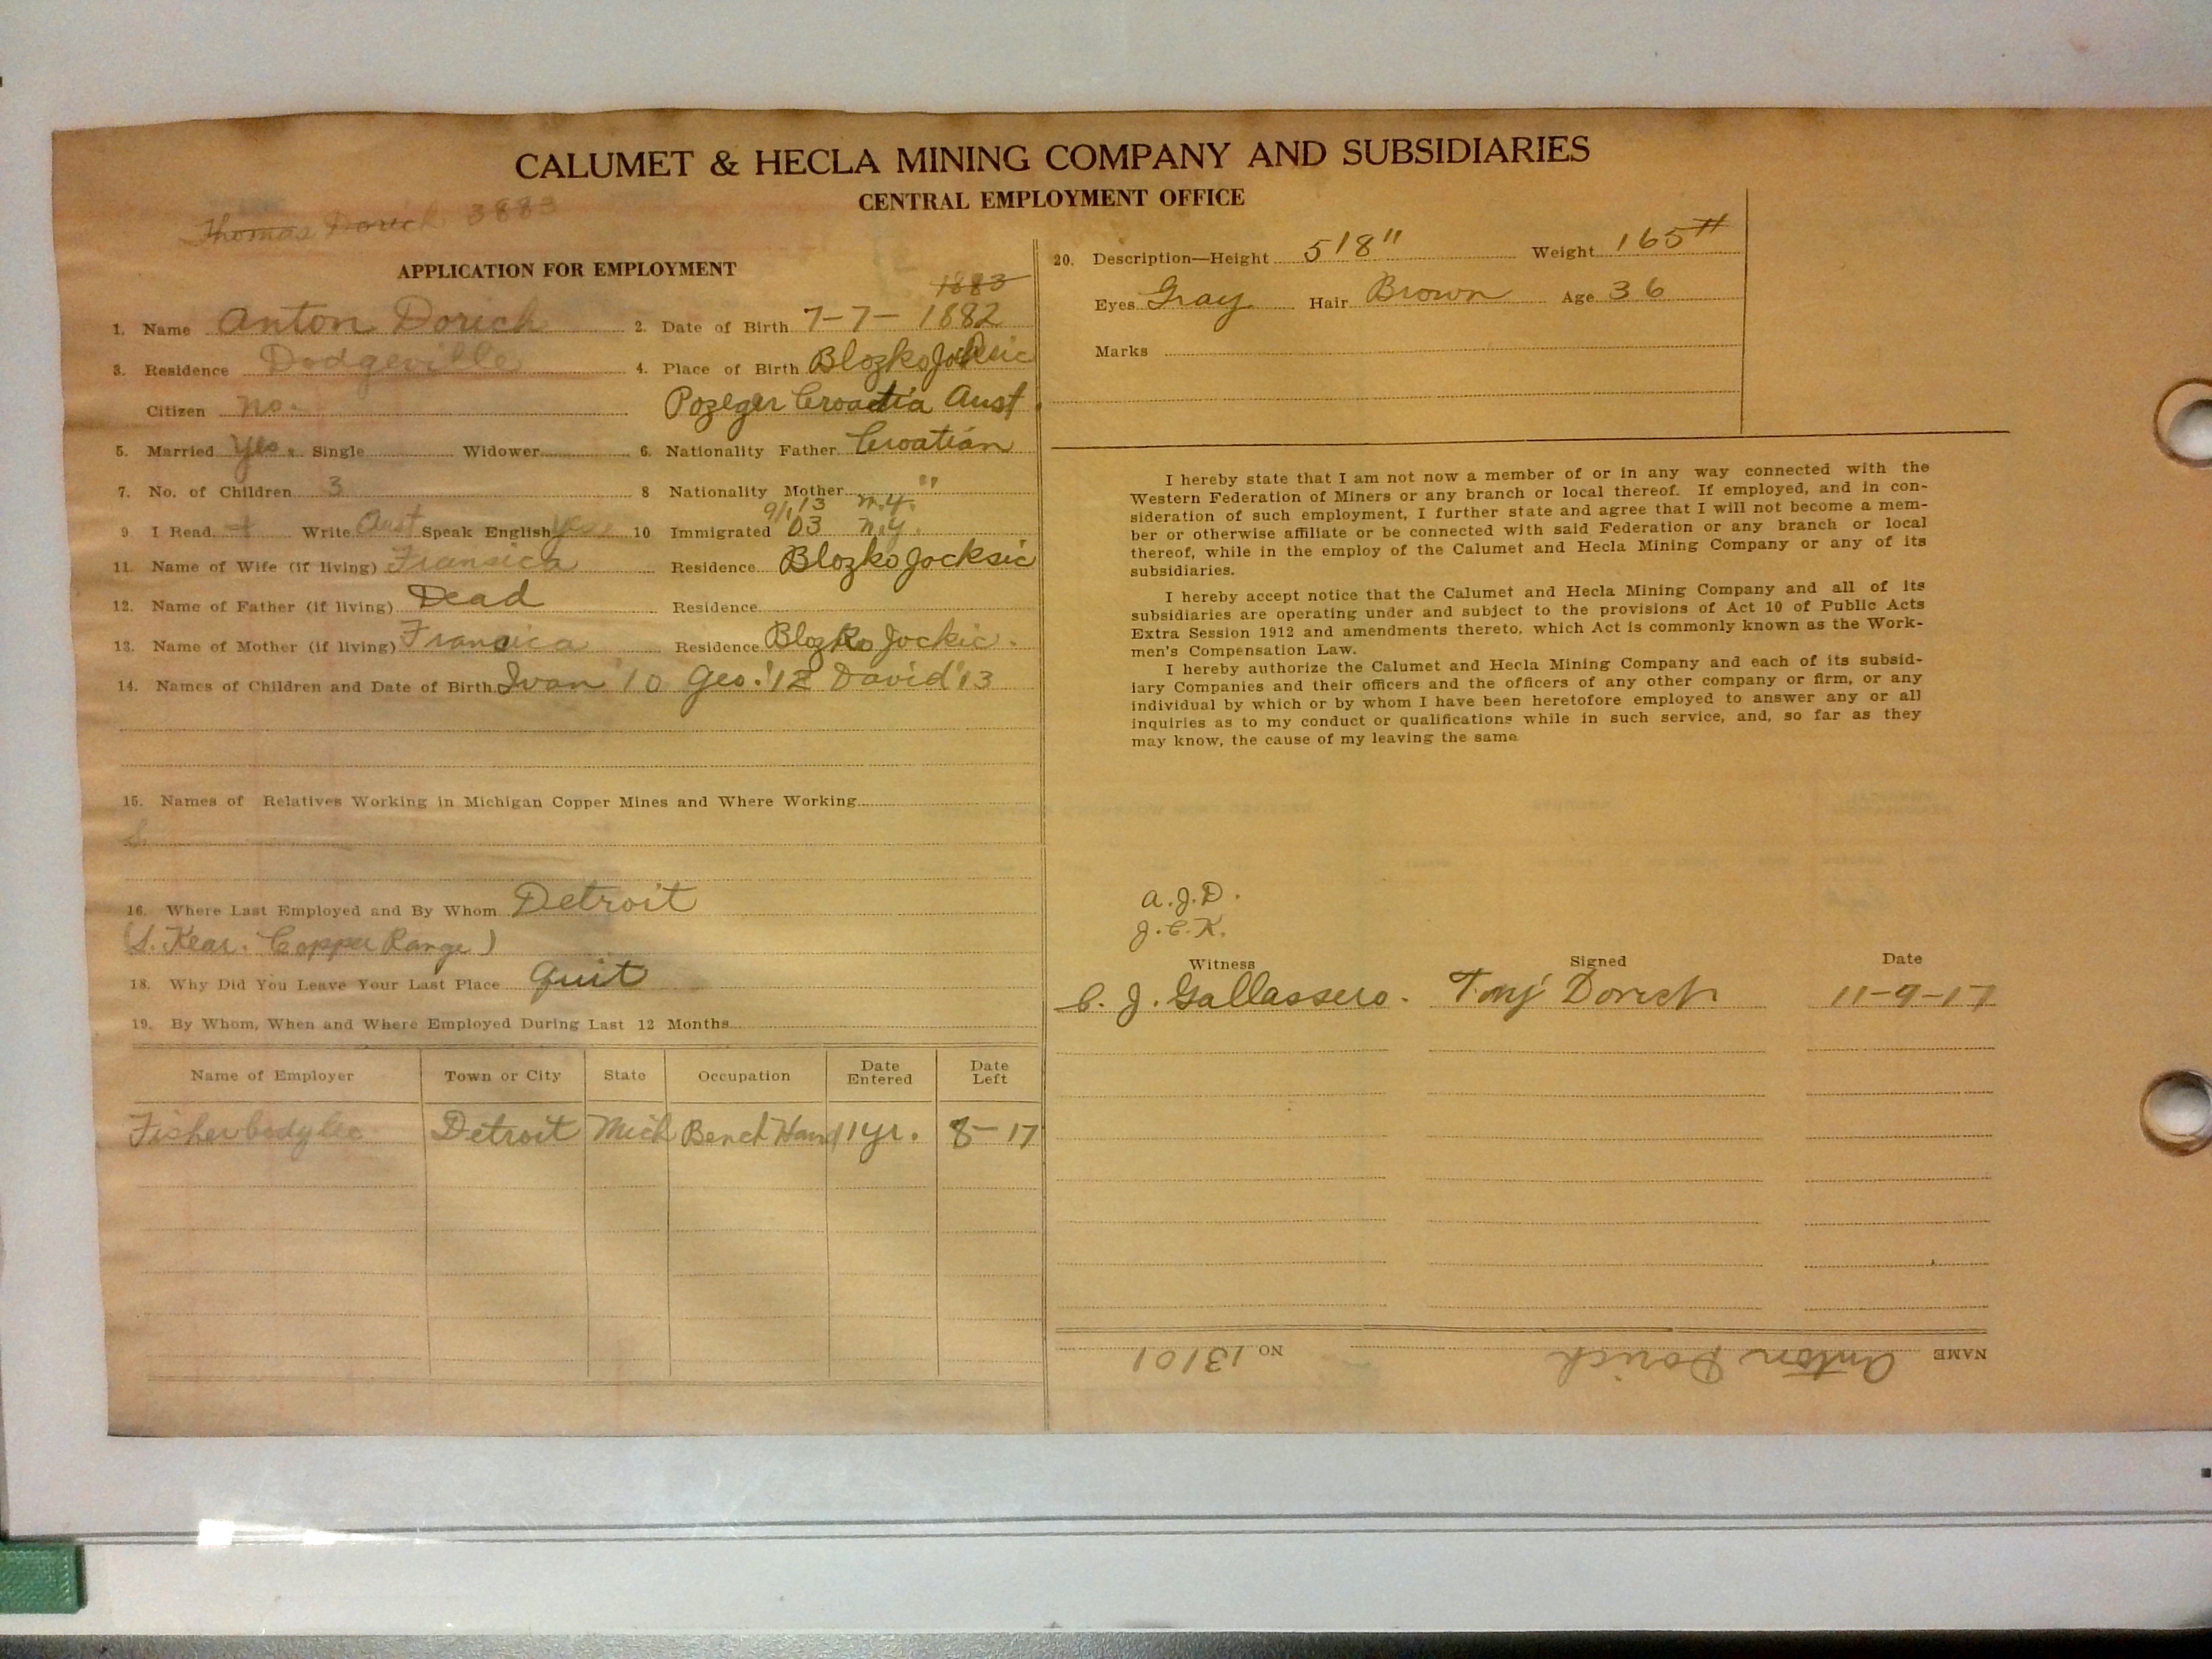 CALUMET & HECLA MINING COMPANY AND SUBSIDIARIES
CENTRAL EMPLOYMENT OFFICE
Thomas Dorich 3883
APPLICATION FOR EMPLOYMENT
1. Name Anton Dorich
1883
2. Date of Birth 7-7-1882
3. Residence Dodgeville
4. Place of Birth Blozko Jocksic
Citizen no.
Pozegar Croatia Aust
5. Married Yes Single Widower
6. Nationality Father Croatian
7. No. of Children 3
8 Nationality Mother "
9/1/13 N.Y.
9 I Read + Write Aust Speak English yes
10 Immigrated 03 N.Y.
11. Name of Wife (if living) Fransica Residence Blozko Jocksic
12. Name of Father (if living) Dead Residence
13. Name of Mother (if living) Fransica Residence Blozko Jockic.
14. Names of Children and Date of Birth Ivan '10 Geo. '12 David '13
15. Names of Relatives Working in Michigan Copper Mines and Where Working
16. Where Last Employed and By Whom Detroit
(S. Kear. Copper Range)
18. Why Did You Leave Your Last Place Quit
19. By Whom, When and Where Employed During Last 12 Months
Name of Employer Town or City State Occupation Date Entered Date Left
Fisher body Detroit Mich Bench Hand 1 yr. 8-17
20. Description—Height 5'8" Weight 165#
Eyes Gray Hair Brown Age 36
Marks
I hereby state that I am not now a member of or in any way connected with the
Western Federation of Miners or any branch or local thereof. If employed, and in con-
sideration of such employment, I further state and agree that I will not become a mem-
ber or otherwise affiliate or be connected with said Federation or any branch or local
thereof, while in the employ of the Calumet and Hecla Mining Company or any of its
subsidiaries.
I hereby accept notice that the Calumet and Hecla Mining Company and all of its
subsidiaries are operating under and subject to the provisions of Act 10 of Public Acts
Extra Session 1912 and amendments thereto, which Act is commonly known as the Work-
men's Compensation Law.
I hereby authorize the Calumet and Hecla Mining Company and each of its subsid-
iary Companies and their officers and the officers of any other company or firm, or any
individual by which or by whom I have been heretofore employed to answer any or all
inquiries as to my conduct or qualifications while in such service, and, so far as they
may know, the cause of my leaving the same
A.J.D.
J.C.K.
Witness Signed Date
C. J. Gallassero. Tony Dorich 11-9-17
NAME Anton Dorich NO 13101